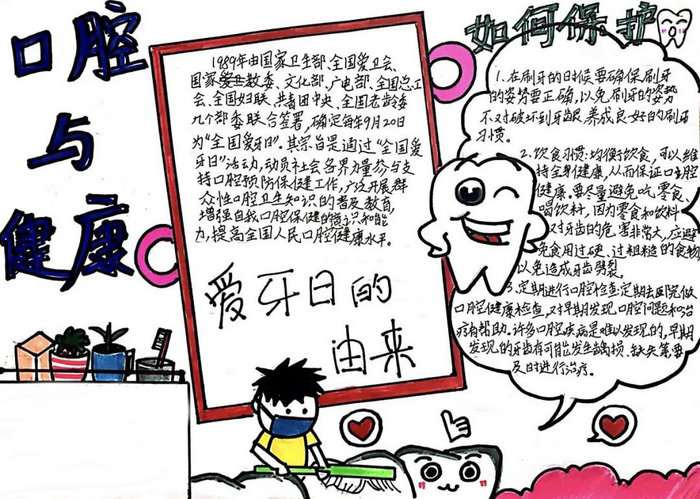 口腔
与
健康
1989年由国家卫生部、全国爱卫会、
国家教委、文化部、广电部、全国总工
会、全国妇联、共青团中央、全国老龄委
九个部委联合签署，确定每年9月20日
为“全国爱牙日”。其宗旨是通过“全国爱
牙日”活动，动员社会各界力量参与支
持口腔预防保健工作，广泛开展群
众性口腔卫生知识的普及教育，
增强自我口腔保健的意识和能
力，提高全国人民口腔健康水平。
爱牙日的
由来
如何保护
1.在刷牙的时候要确保刷牙
的姿势要正确，以免刷牙的姿势
不对破坏到牙龈，养成良好的刷牙
习惯。
2.饮食习惯：均衡饮食，可以维
持全身健康，从而保证口腔
健康。要尽量避免吃零食、
喝饮料，因为零食和饮料
对牙齿的危害非常大，应避
免食用过硬、过粗糙的食物
以免造成牙齿劈裂。
3.定期进行口腔检查：定期去医院做
口腔健康检查，对早期发现口腔问题和治
疗有帮助。许多口腔疾病是难以发现的，早期
发现的牙齿有可能发生龋损、缺失等要
及时进行治疗。